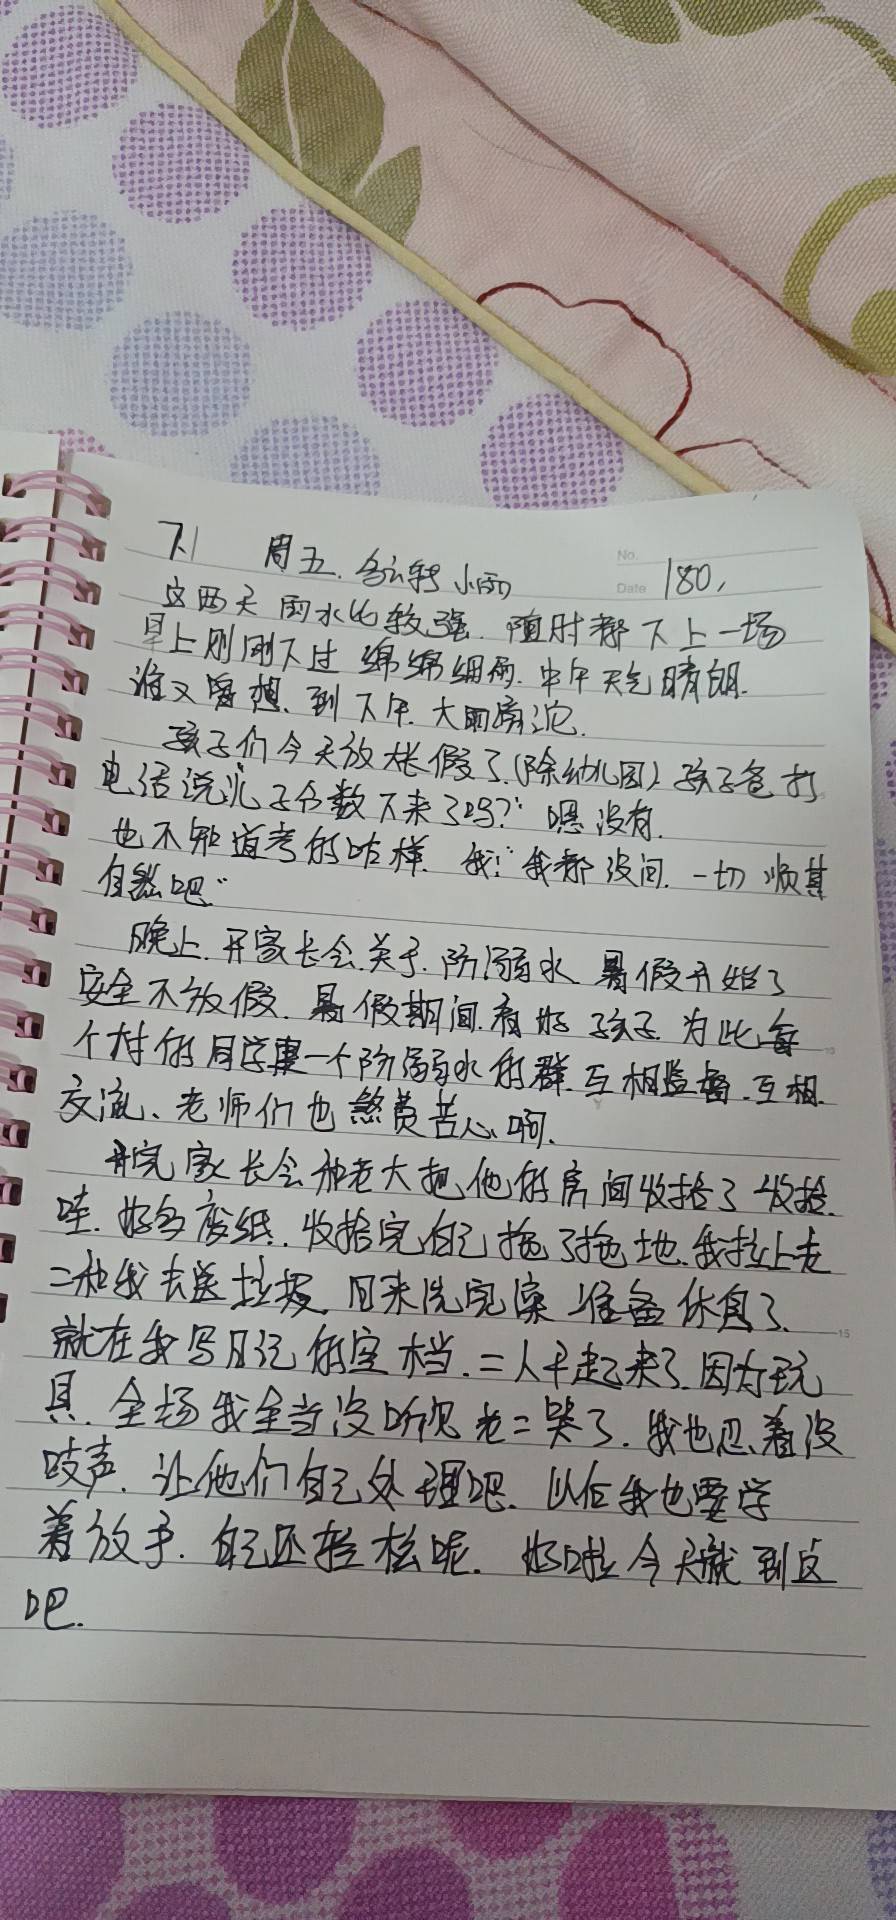 7.1 周五.多云转小雨 No. Date 180,
这两天雨水比较强.随时都下上一场
早上刚刚下过绵绵细雨.中午天气晴朗.
谁又曾想.到下午.大雨滂沱.
孩子们今天放大长假了.(除幼儿园)孩子爸打
电话说"儿子分数下来了吗?"嗯没有.
也不知道考的咋样.我:"我都没问.一切顺其
自然吧"
晚上.开家长会.关于.防溺水.暑假开始了
安全不放假.暑假期间.看好孩子.为此每
个村的同学建一个防溺水的群.互相监督.互相.
交流、老师们也煞费苦心啊.
开完家长会和老大把他的房间收拾了收拾.
哇.好多废纸.收拾完自己拖了拖地.我拉上老
二和我去送垃圾.回来洗完澡准备休息了.
就在我写日记的空档.二人干起来了.因为玩
具.全场我全当没听见老二哭了.我也忍着没
吱声.让他们自己处理吧.以后我也要学
着放手.自己还轻松呢.好啦今天就到这
吧.